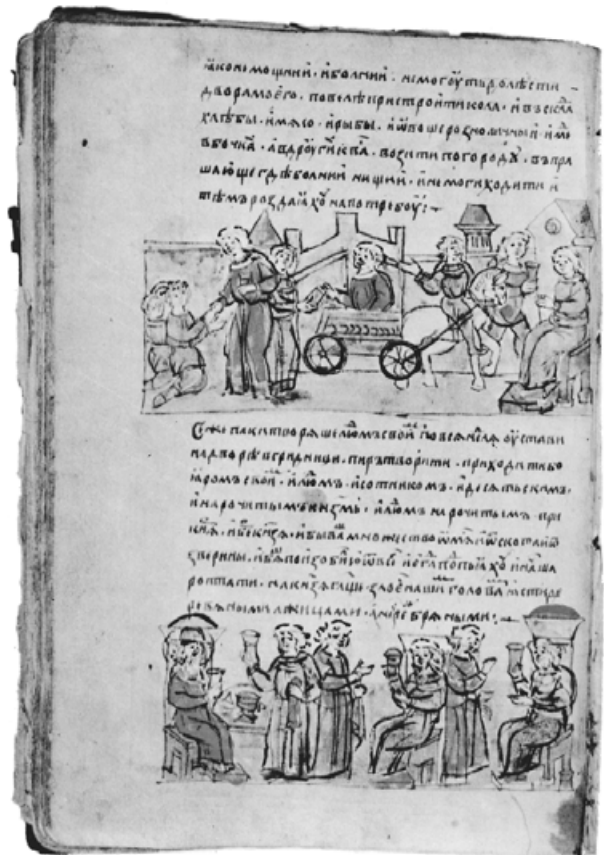 ꙗко немощнии · и болнии · не могоуть долѣсти
двора моего · повелѣ пристроити кола · и въскла
хлѣбы · и мясо · и рыбы · и ѡвощь розноличныи · и мд҃о
в бочка · а в дроугии ква · возити по городꙋ · въпра
шающе гдѣ болнии нищии · и не моги ходити и
тѣмъ роздаꙗхоу на потребоу :~
Се же паки творяше людмъ свои по вся нл҃я оустави
на дворѣ в гридници · пиръ творити · приходити бо
ꙗромъ свои · и людмъ · и сотником · и десятьским ·
и нарочитымъ · и людмъ нарочитымъ · при
кн҃зя · и бес кн҃зя · и быва множество ѿ мя и ѿ скота и ѿ
звѣрины · егда поᲂпьꙗхоу нача
роптати · на кн҃зя гл҃ще · зло есть наши голова ꙗсти дре
вяными лжицами · а не сребряными :~